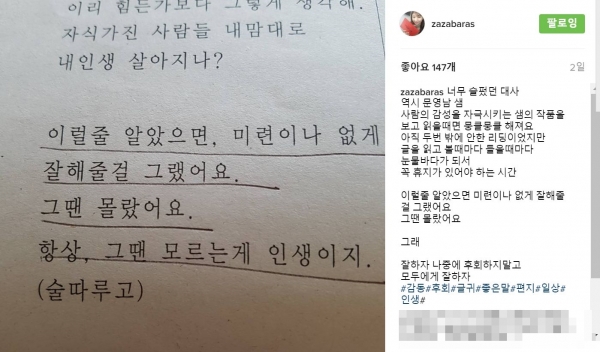 이리 힘든가보다 그렇게 생각해.
자식가진 사람들 내맘대로
내인생 살아지나?
이럴줄 알았으면, 미련이나 없게
잘해줄걸 그랬어요.
그땐 몰랐어요.
항상, 그땐 모르는게 인생이지.
(술따루고)
zazabaras
팔로잉
좋아요 147개
2일
zazabaras 너무 슬펐던 대사
역시 문영남 샘
사람의 감성을 자극시키는 샘의 작품을
보고 읽을때면 뭉클뭉클 해져요
아직 두번 밖에 안한 리딩이었지만
글을 읽고 볼때마다 들을때마다
눈물바다가 되서
꼭 휴지가 있어야 하는 시간
이럴줄 알았으면 미련이나 없게 잘해줄
걸 그랬어요
그땐 몰랐어요
그래
잘하자 나중에 후회하지말고
모두에게 잘하자
#감동#후회#글귀#좋은말#편지#일상#
인생#